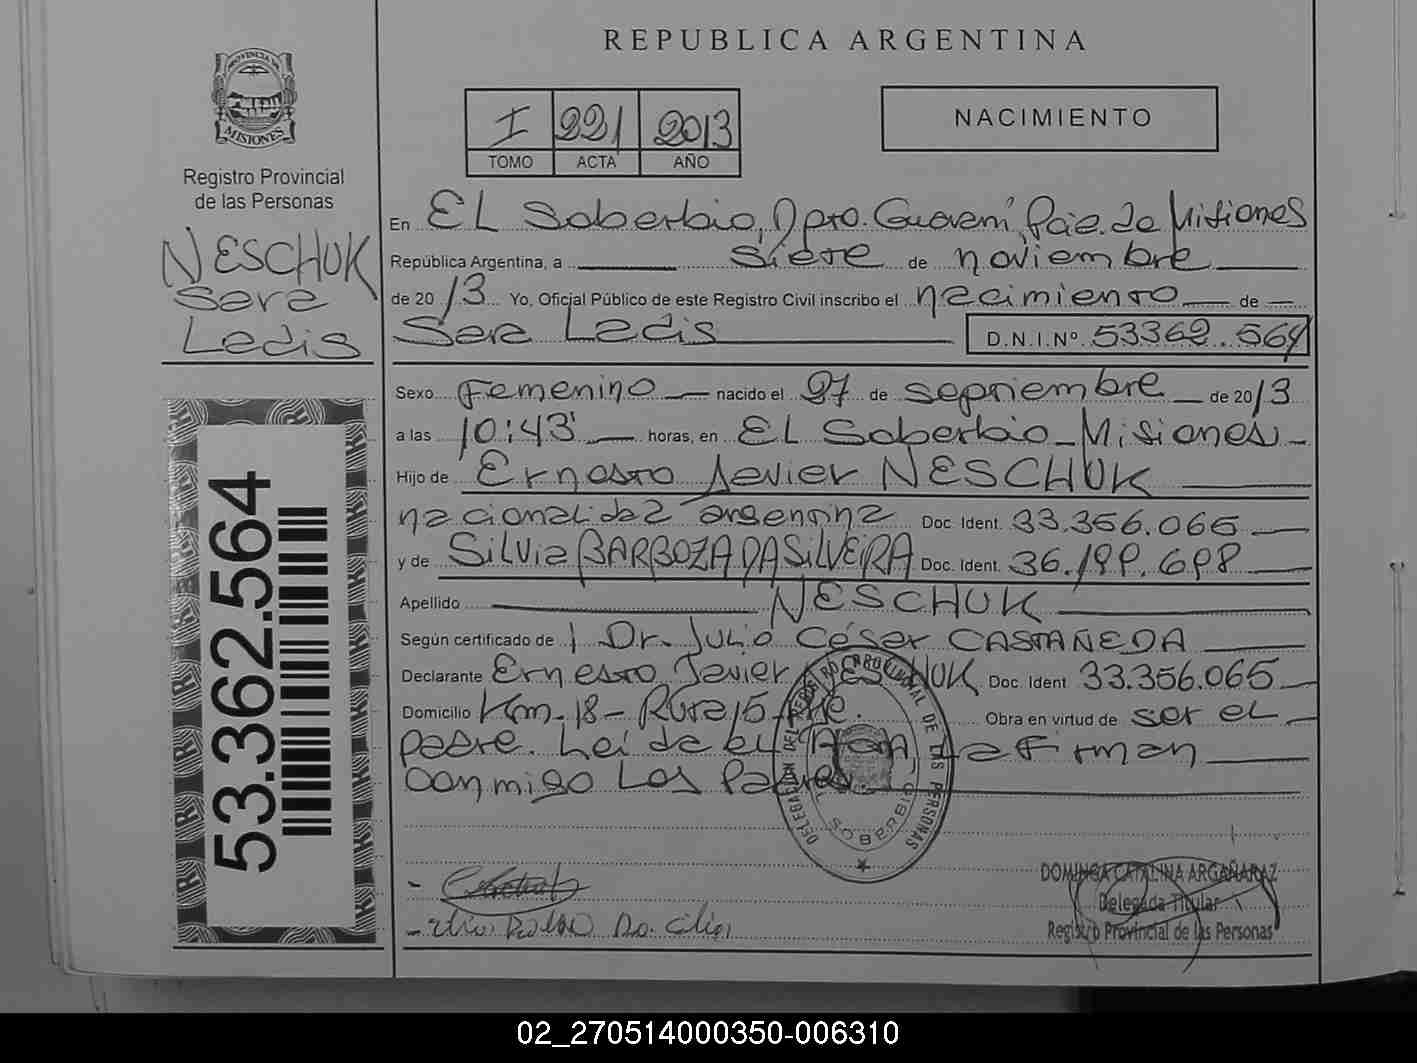 REPUBLICA ARGENTINA
PROVINCIA DE
MISIONES
Registro Provincial
de las Personas
NESCHUK
Sara
Ledis
53.362.564
I 221 2013
TOMO ACTA AÑO
NACIMIENTO
En EL Soberbio, Dpto. Guaraní, Pcia. de Misiones
República Argentina, a siete de noviembre
de 2013 Yo, Oficial Público de este Registro Civil inscribo el nacimiento de
Sara Ledis D.N.I.Nº 53362.564
Sexo Femenino nacido el 27 de septiembre de 2013
a las 10:43' horas, en EL Soberbio - Misiones -
Hijo de Ernesto Javier NESCHUK
nacionalidad argentina Doc. Ident. 33.356.065
y de Silvia BARBOZA DA SILVEIRA Doc. Ident. 36.199.698
Apellido NESCHUK
Según certificado de Dr. Julio César CASTAÑEDA
Declarante Ernesto Javier NESCHUK Doc. Ident 33.356.065
Domicilio Km-18- Ruta 15 Obra en virtud de ser el
padre. Leída el Acta La Firman
Conmigo Los Padres.
DELEGACION DEL REGISTRO PROVINCIAL DE LAS PERSONAS
SOBERBIO
DOMINGA CATALINA ARGAÑARAZ
Delegada Titular
Registro Provincial de las Personas
02_270514000350-006310